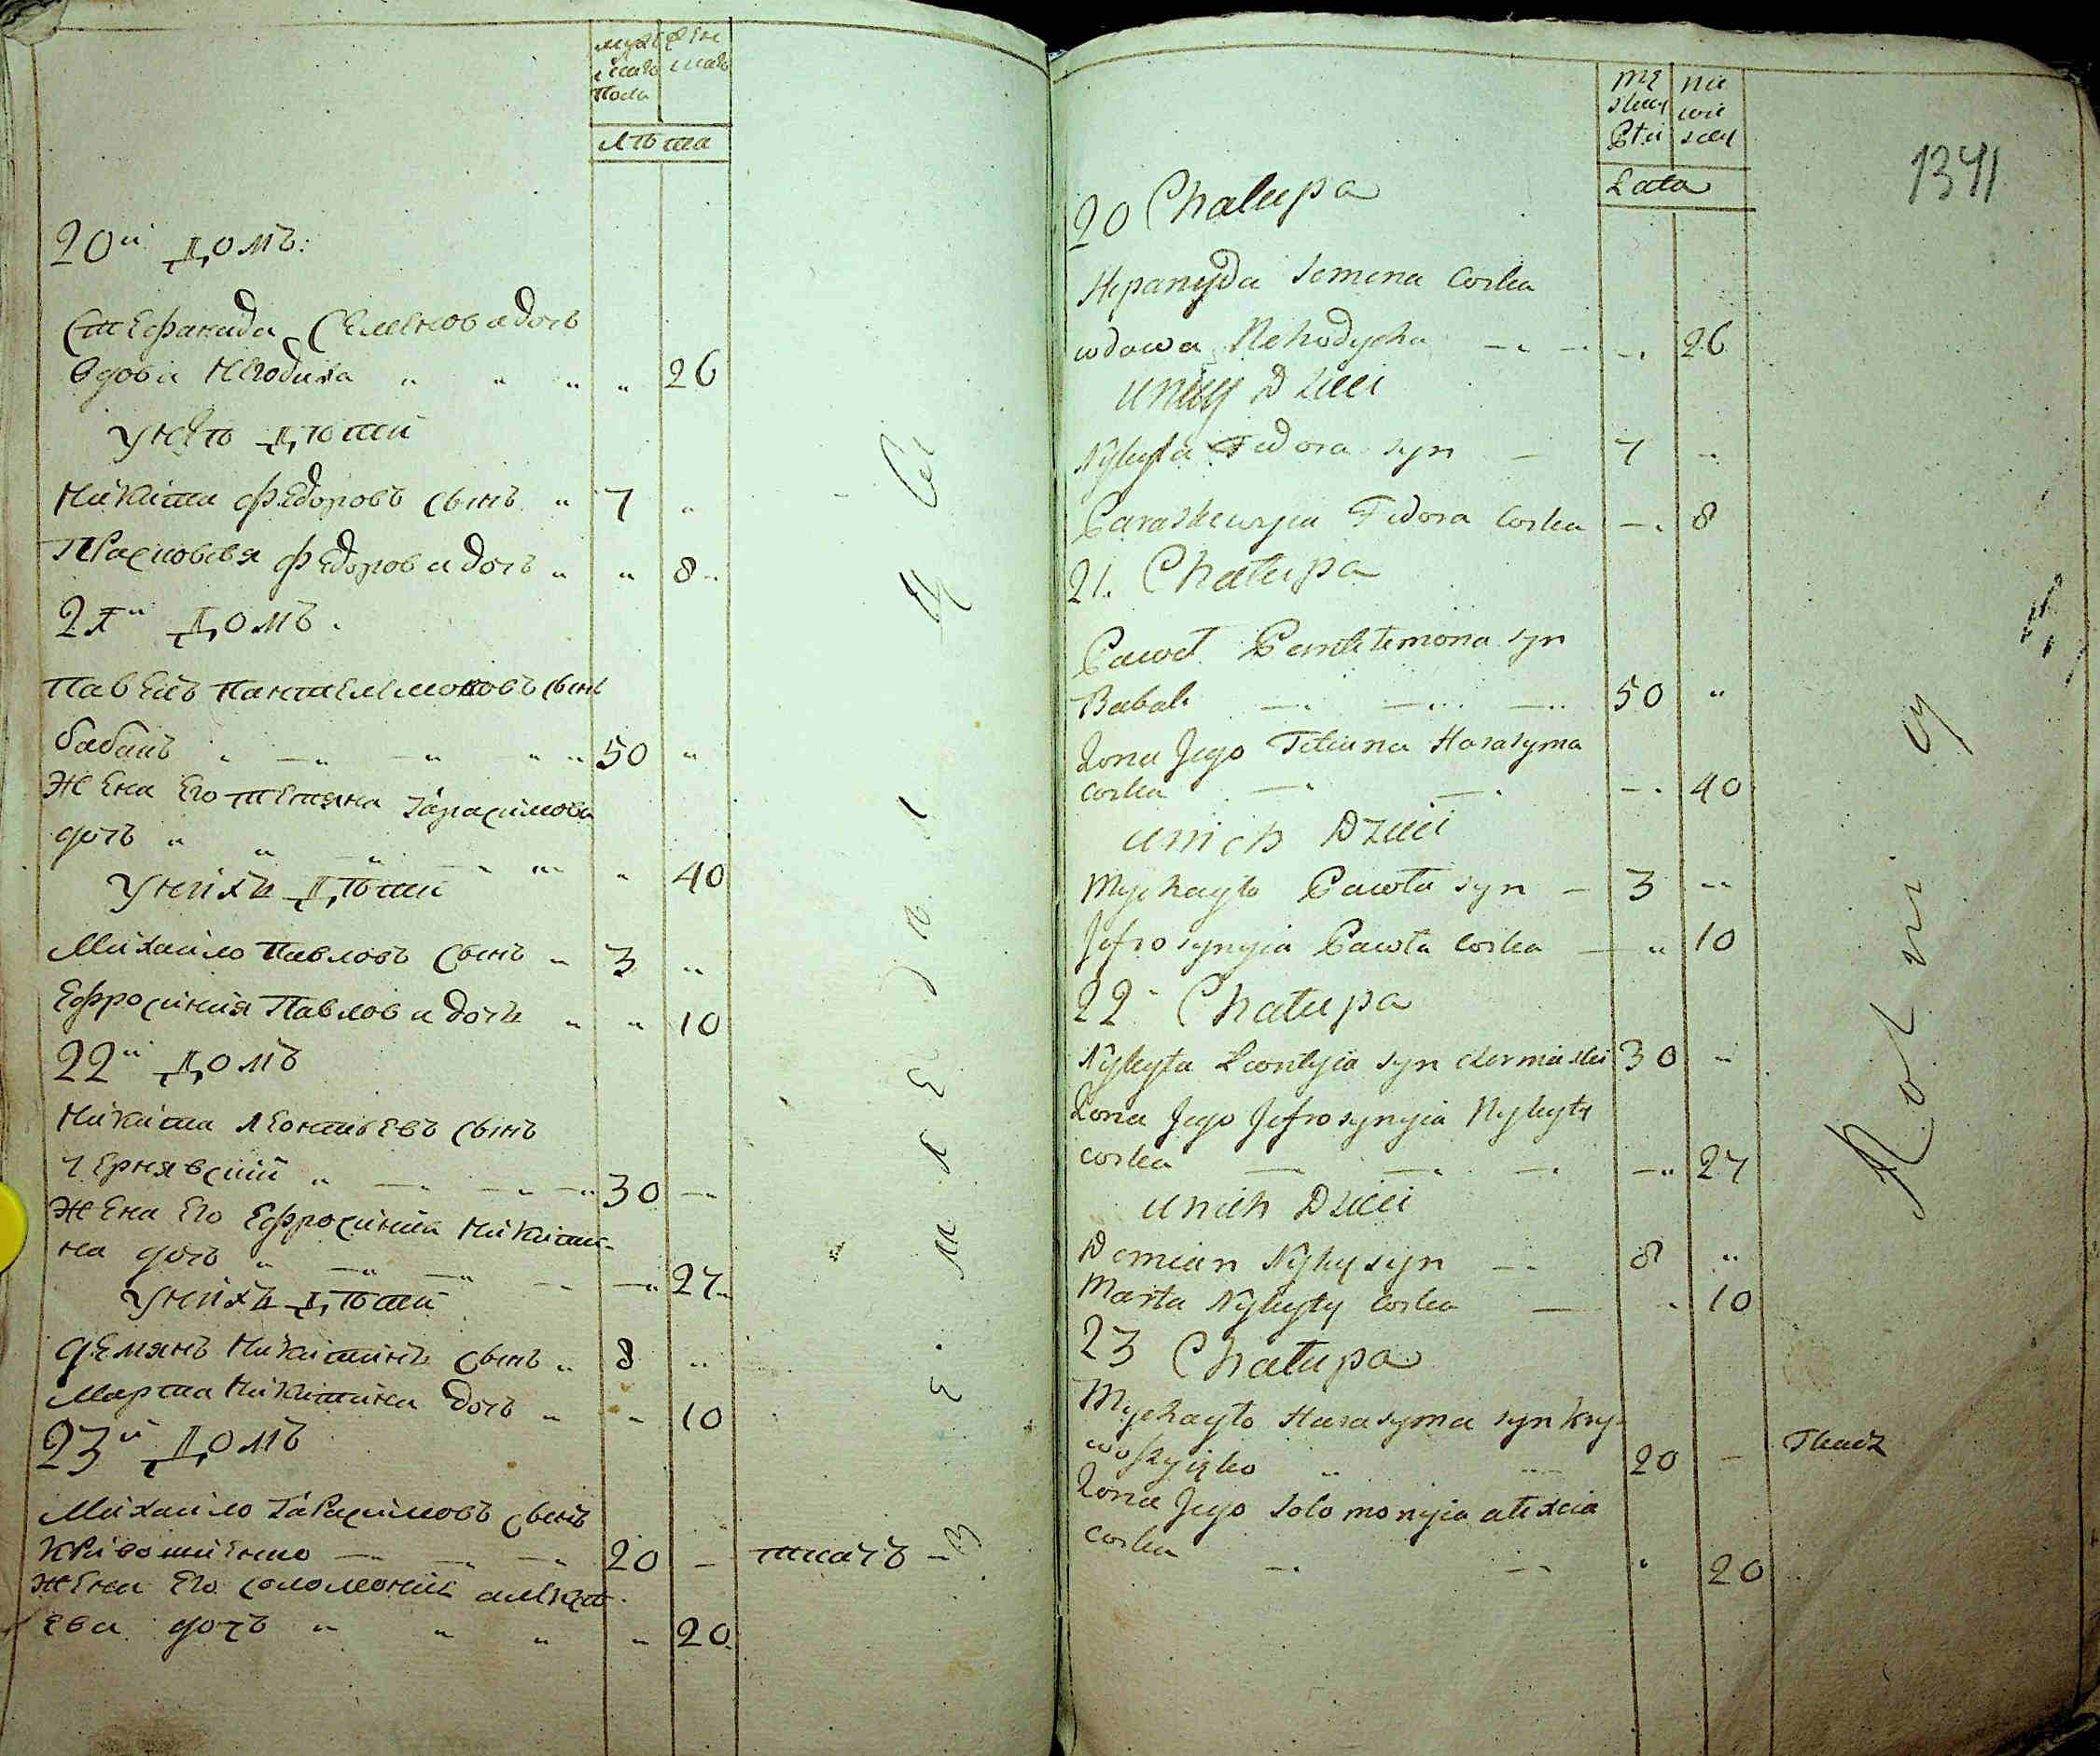 мужес
каго
пола
женс
каго
лѣта
20й домъ:
Стефанида Семенова дочь
вдова Негодиха „ „ „ „ 26
у нея дѣти
Никита Федоровъ сынъ „ 7 „
Прасковья Федорова дочь „ „ 8
21й домъ.
Павелъ Пантелемоновъ сынъ
бабакъ „ „ „ „ 50 „
жена его Тетяна Гарасимова
дочь „ „ „ „ „ 40
у нихъ дѣти
Михайло Павловъ сынъ „ 3 „
Ефросиния Павлова дочь „ „ 10
22й домъ
Никита Леонтьевъ сынъ
чернявский „ „ „ „ 30 „
жена его Ефросиния Никити-
на дочь „ „ „ „ „ 27
у нихъ дѣти
Демянъ Никитинъ сынъ „ 8 „
Марта Никитина дочь „ „ 10
23й домъ
Михайло Гарасимовъ сынъ
Кривошиенко — — — 20 — ткачъ
жена его Соломония алексѣ-
ева дочь „ „ „ „ 20
Землед
1341
Mę
skiey
Płci
Nie
wie
sciey
Lata
20 Chałupa
Stepanyda Semena Corka
wdowa Nehodycha — — — 26
u niey Dzieci
Nykyta Fedora syn — 7 „
Paraskewyia Fedora Corka — 8
21. Chałupa
Paweł Pantelemona syn
Babak — — — 50 „
Zona Jego Tetiana Harasyma
corka — — — 40
u nich Dzieci
Mychayło Pawła syn — 3 „
Jefrosynyia Pawła Corka — „ 10
22 Chałupa
Nykyta Leontyia syn czerniaski 30 „
Zona Jego Jefrosynyia Nykyty
corka — — — — 27
u nich Dzieci
Demian Nyky syn — 8 „
Marta Nykyty Corka — „ 10
23 Chałupa
Mychayło Harasyma syn kry-
woszyięko „ — 20 — Tkacz
Zona Jego Solomonyia alexeia
corka — — „ 20
Rolnicy